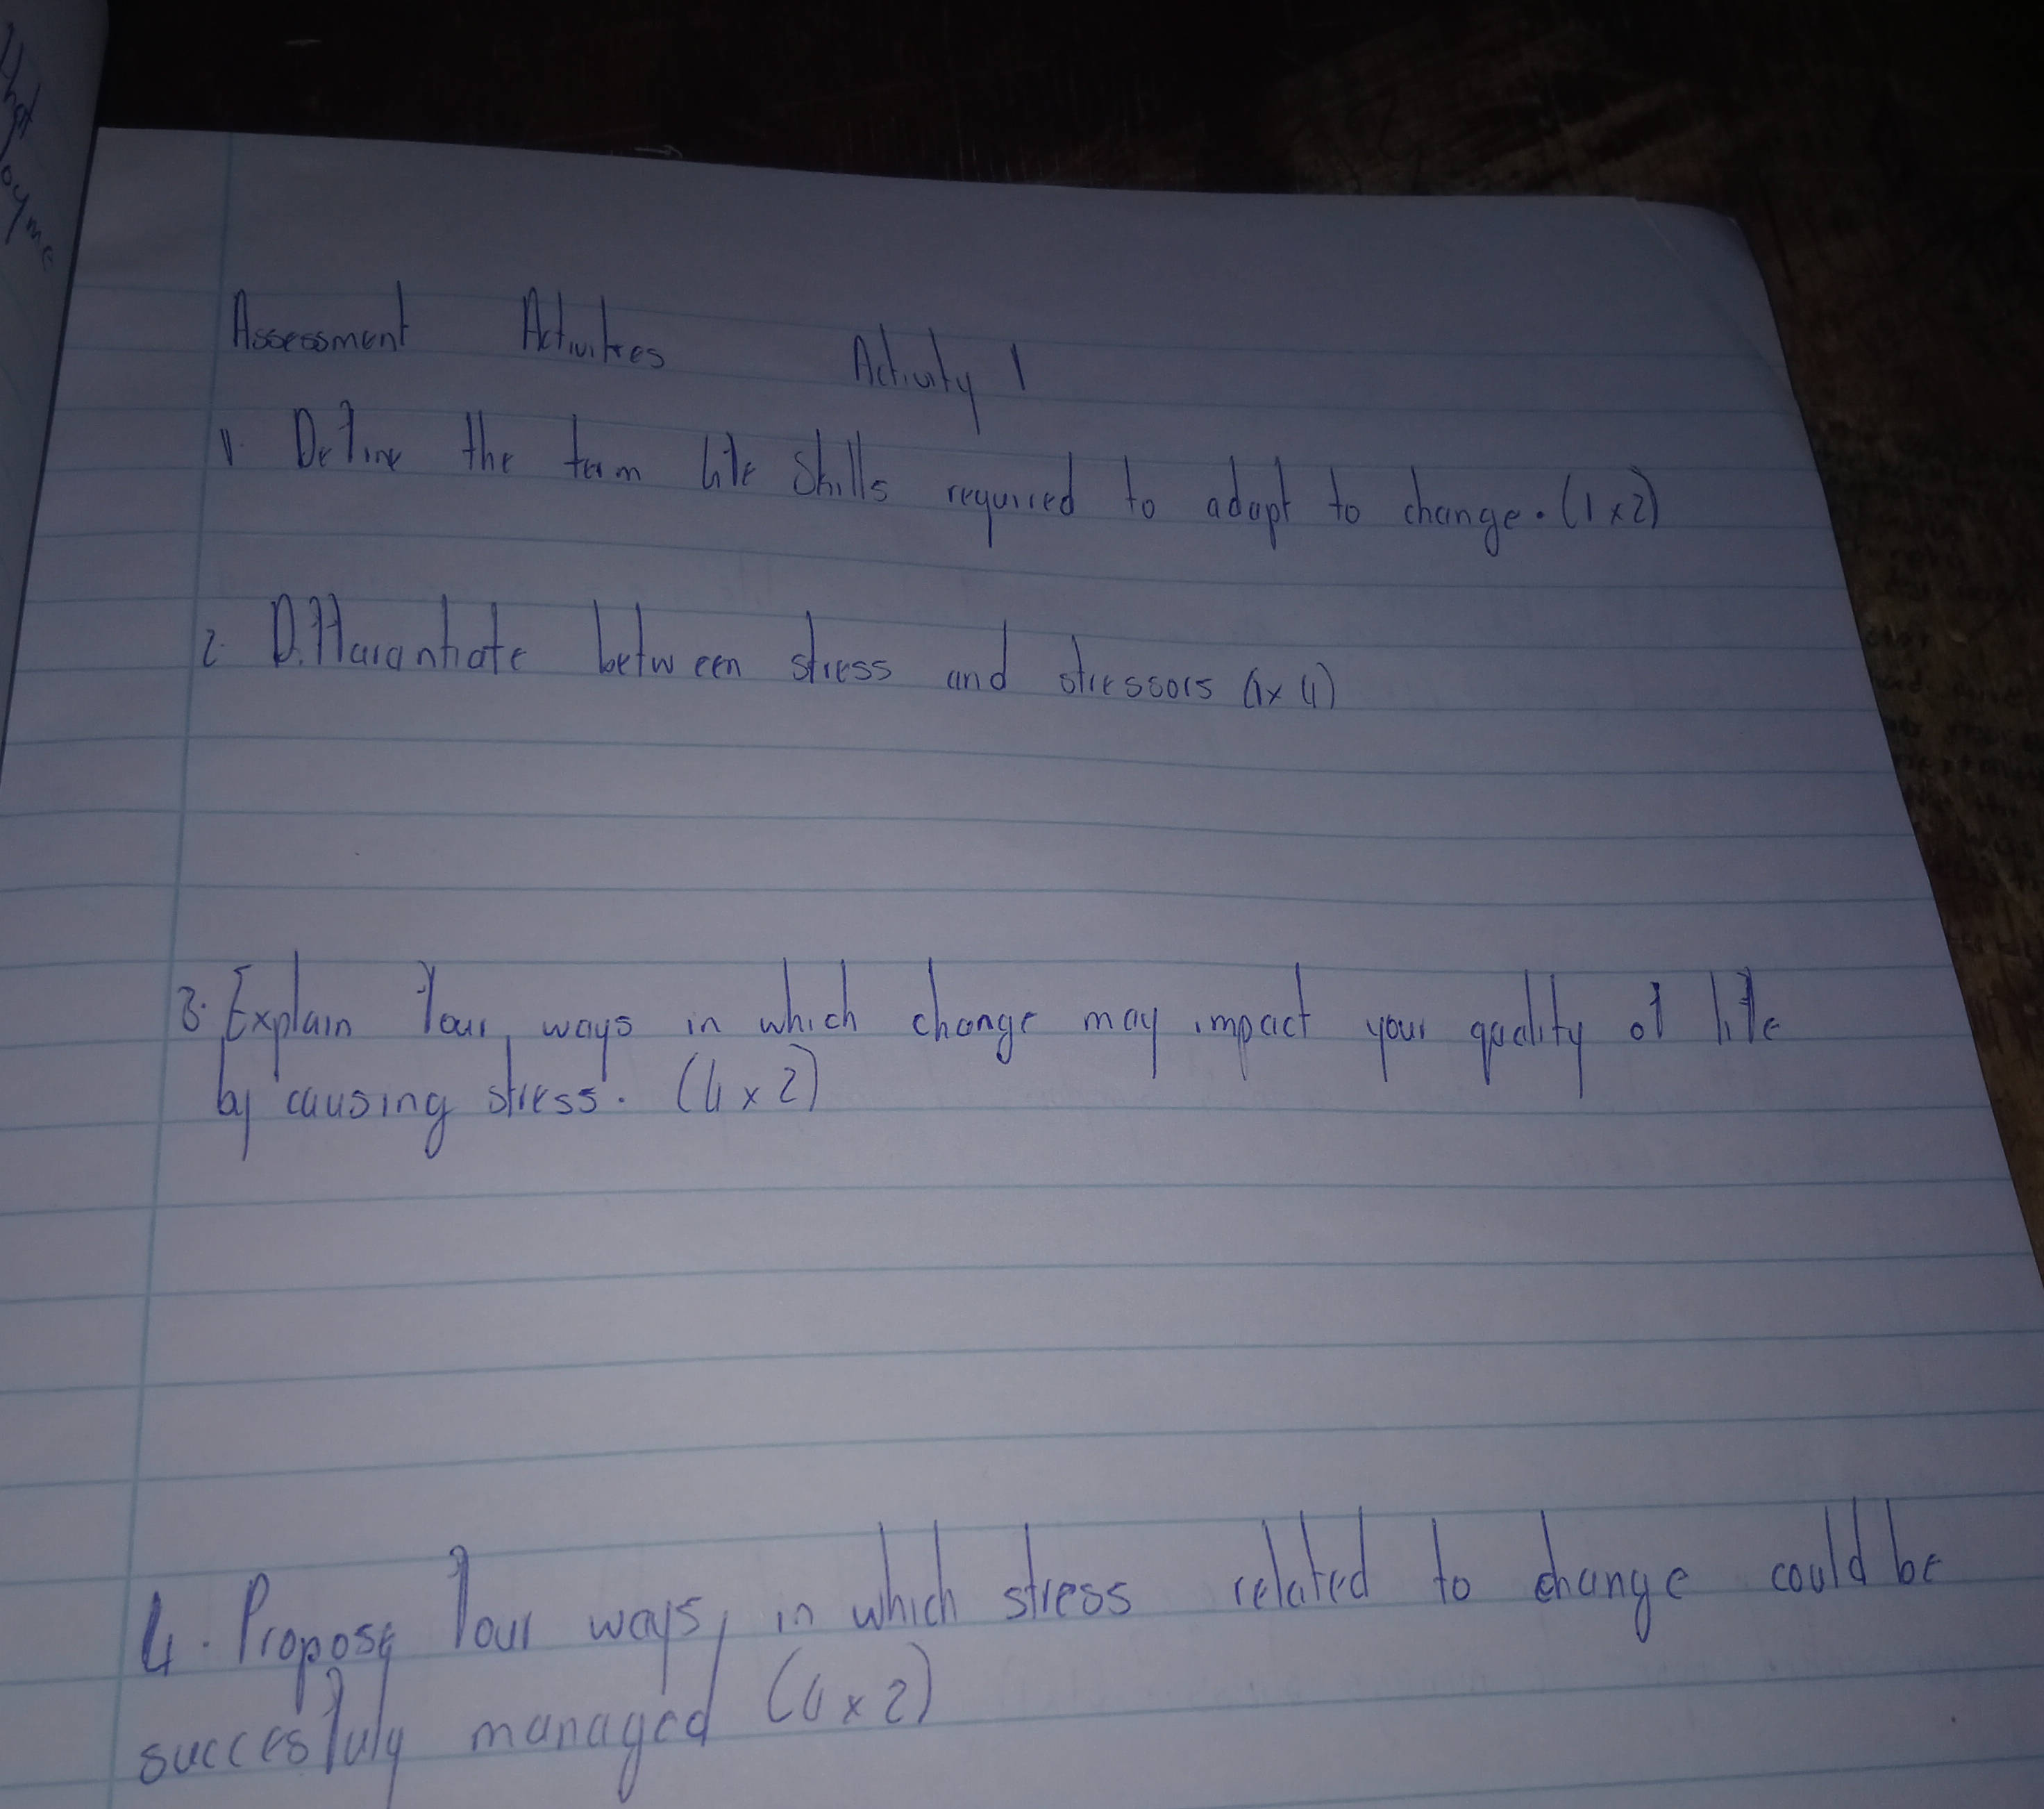 Assessment Activities Activity 1
1. Define the term life skills required to adapt to change. (1x2)
2. Differantiate between stress and stressors (1x4)
3. Explain four ways in which change may impact your quality of life
by causing stress. (4x2)
4. Propose four ways, in which stress related to change could be
succesfuly managed (4x2)